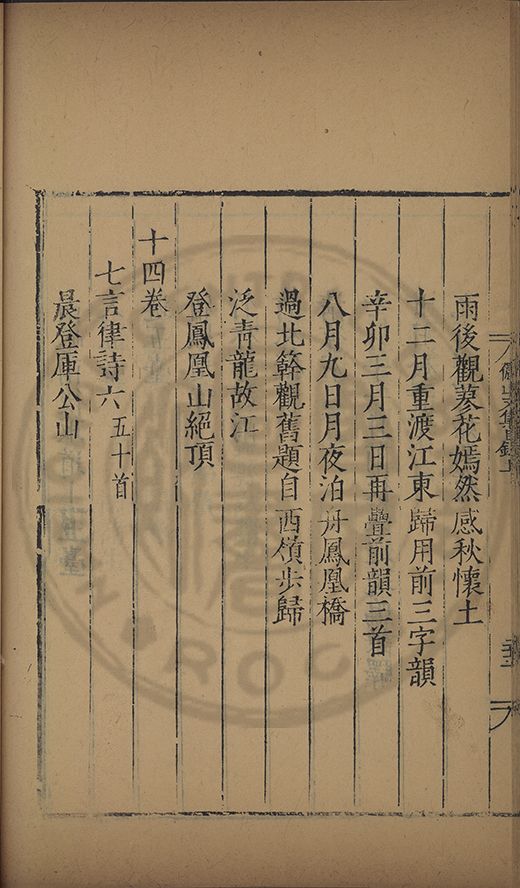 雨後觀蓼花嫣然感秋懷土
十二月重渡江東歸用前三字韻
辛卯三月三日再疊前韻三首
八月九日月夜泊舟鳳凰橋
過北簳觀舊題自西嶺步歸
泛青龍故江
登鳳凰山絕頂
十四卷
七言律詩六 五十首
晨登厙公山